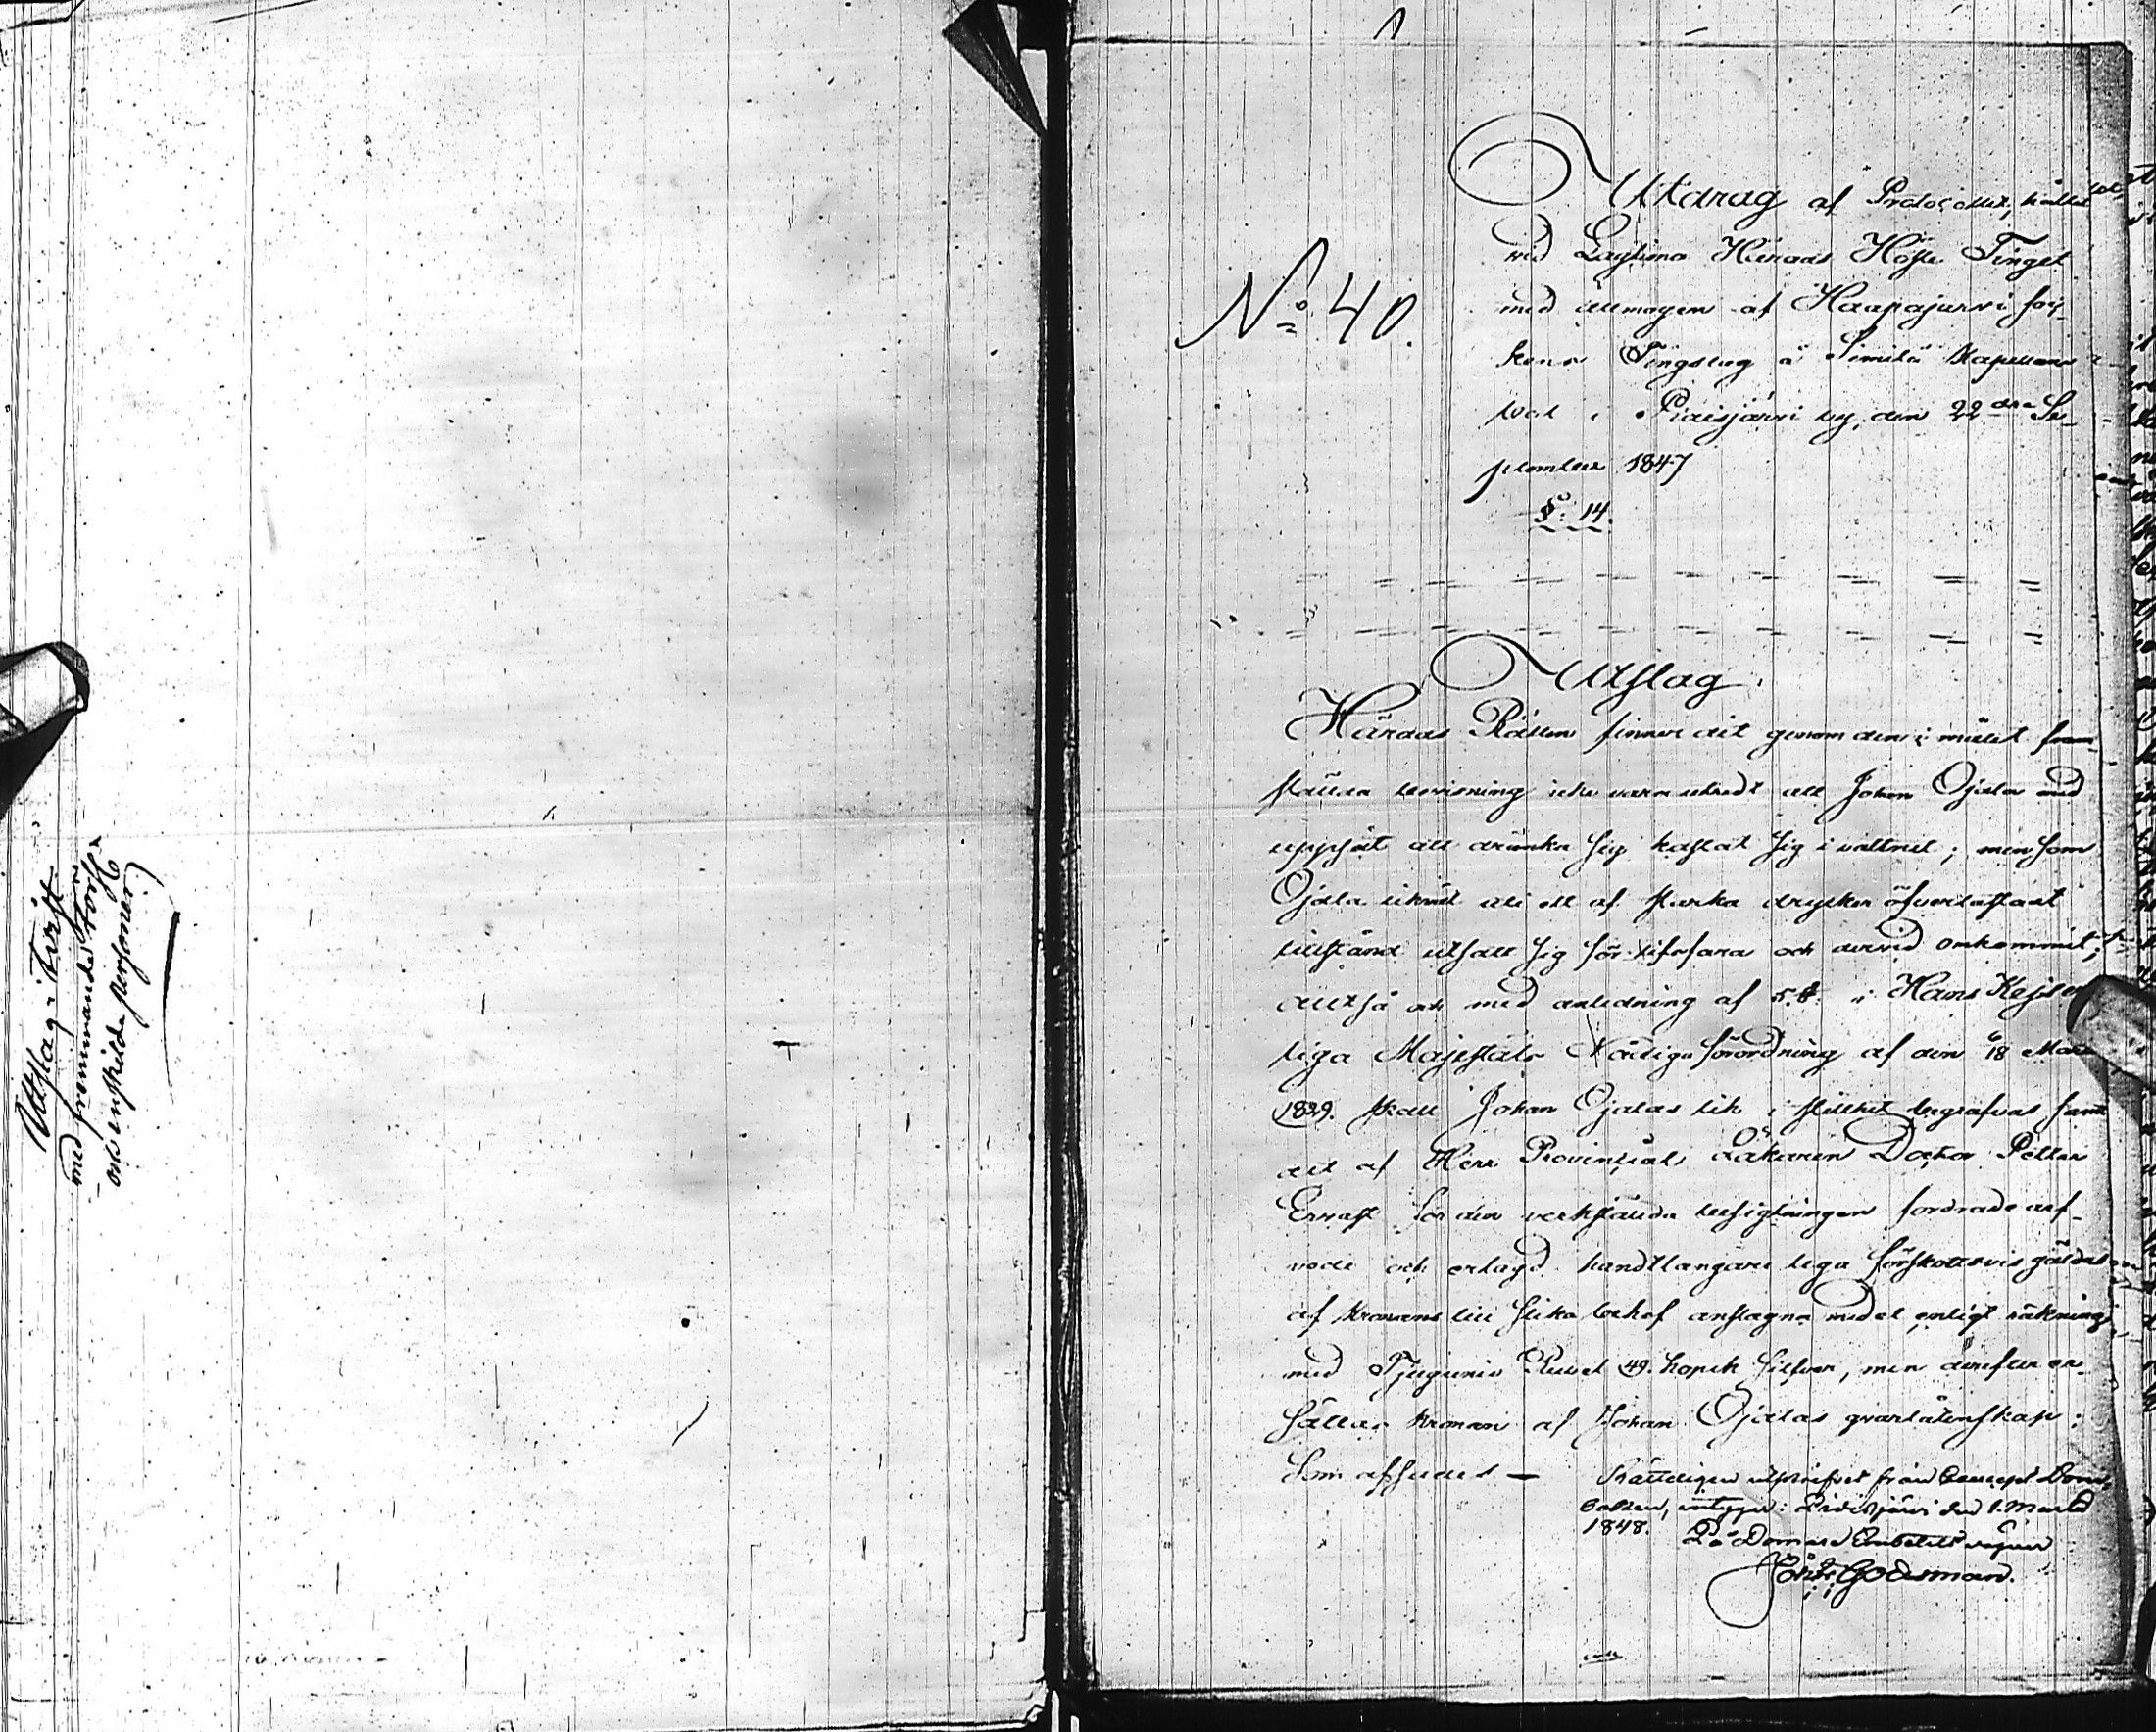 Utslag i tvist
med främmande Försk
och enskilda personer
Utdrag af Protocollet, hållet
vid Lagtima Härads Höste Tinget
med allmogen af Haapajärvi Soc-
kens Tingslag å Similä Kapellans
bol i Pidisjärvi by, den 22dra Se-
ptember 1847
§: 14.
No 40.
Utslag.
Härads Rätten finner det genom den i målet fram-
stälda bevisning icke vara utredt att Johan Ojala med
uppsåt att dränka sig kastat sig i vattnet; men som
Ojala likväl uti ett af starka drycker öfverlastadt
tillstånd utsatt sig för lifsfara och dervid omkommit;
alltså och med anledning af 5 §. i Hans Kejser
liga Majestäts Nådiga förordning af den 18 Mars
1829. skall Johan Ojalas lik i stillhet begrafvas samt
det af Herr Provincial Läkaren Doctor Petter
Ernst för den verkstälda besigtningen fordrade arf-
vode och erlagd handtlangare lega förskottsvis gäldas
af Kronans till slika behof anslagna medel enligt räkning
med Tjugunio Rubel 49. kopek Silfver, men derefter er-
sättas Kronan af Johan Ojalas qvarlåtenskap;
Som afsades —
Rätteligen utskrifvet från Concept Dom-
boken, intygar: Pidisjärvi den 1. Martii
1848.
På Domare Embetets vägnar
Godsman.